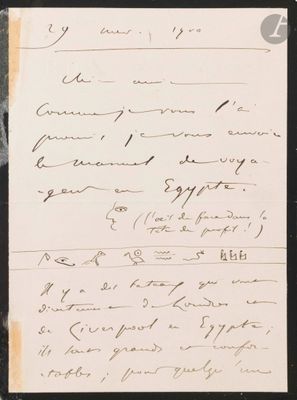 29 1900
Cher ami
Comme je vous l'ai
promis, je vous envoie
le manuel de voya-
-geur en Egypte.
(l'œil de face dans la
tête de profil !)
Il y a des bateaux qui vont
directement de Londres et
de Liverpool en Egypte ;
ils sont grands et confor-
-tables ; pour quelqu'un